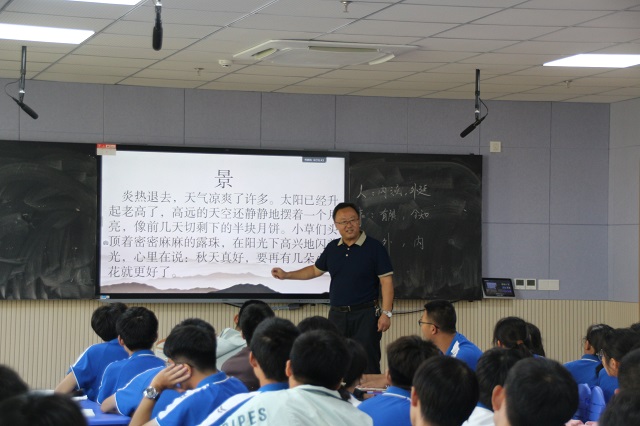 景
炎热退去，天气凉爽了许多。太阳已经升
起老高了，高远的天空还静静地摆着一个月
亮，像前几天切剩下的半块月饼。小草们头
顶着密密麻麻的露珠，在阳光下高兴地闪
光，心里在说：秋天真好，要再有几朵
花就更好了。
人：
内
IPES